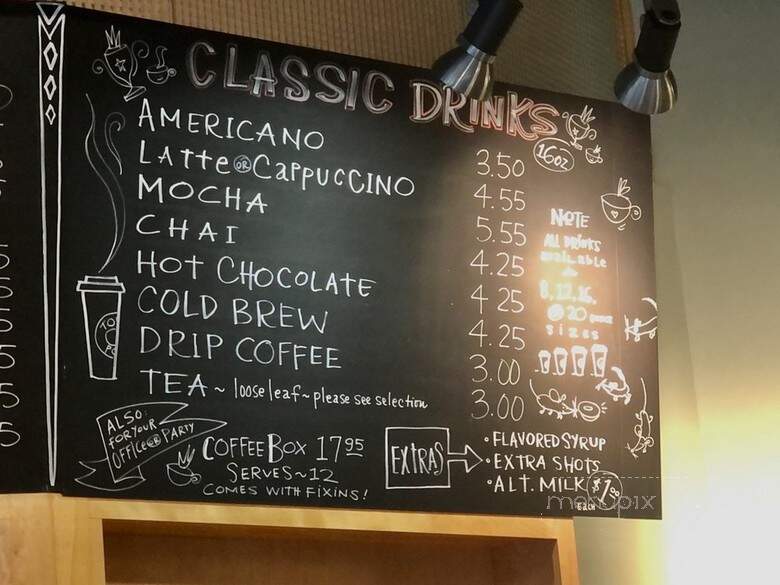 CLASSIC DRINKS
16oz
AMERICANO 3.50
LATTE OR CAPPUCCINO 4.55
MOCHA 5.55
CHAI 4.25
HOT CHOCOLATE 4 25
COLD BREW 4.25
DRIP COFFEE 3.00
TEA ~ loose leaf ~ please see selection 3.00
NOTE
ALL DRINKS
available
8, 12, 16,
20
sizes
ALSO
FOR YOUR
OFFICE OR PARTY
COFFEE BOX 17 95
SERVES ~ 12
COMES WITH FIXINS!
EXTRAS
• FLAVORED SYRUP
• EXTRA SHOTS
• ALT. MILK $1.00
EACH
menupix
5
5
5
5
5
5